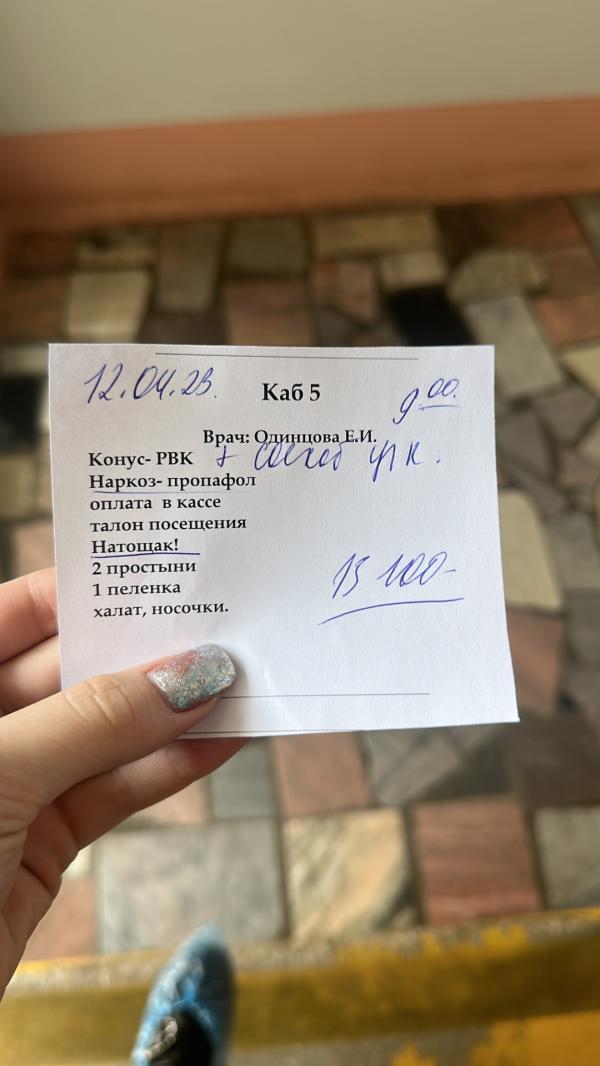 12.04.23. Каб 5 9 00.
Врач: Одинцова Е.И.
Конус- РВК + соскоб ц/к.
Наркоз- пропафол
оплата в кассе
талон посещения
Натощак!
2 простыни
1 пеленка
халат, носочки.
13 100-